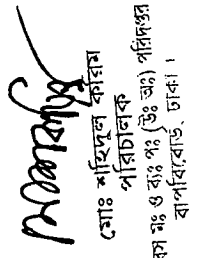 মোঃ শহিদুল করিম
পরিচালক
নঃ ও ব্যঃ পঃ (উঃ অঃ) পরিদপ্তর
বাপবিবোর্ড, ঢাকা।